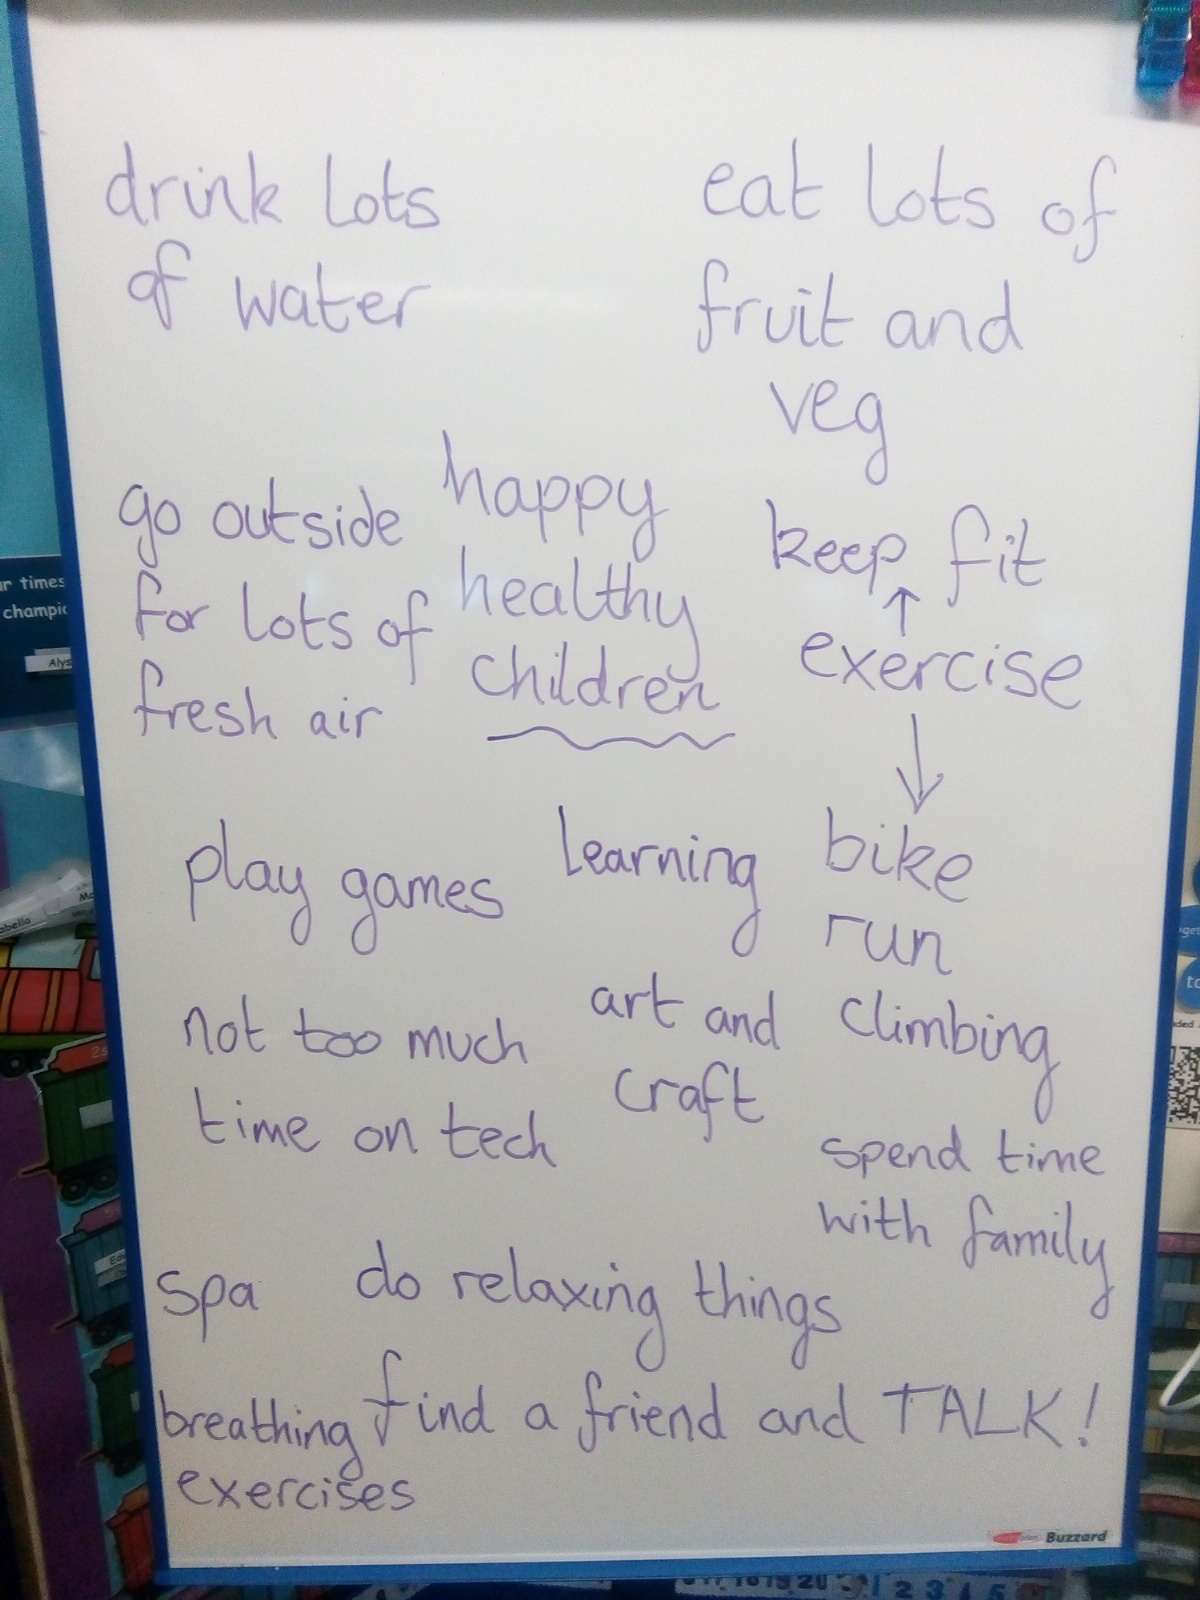 drink lots
of water
eat lots of
fruit and
veg
happy
healthy
children
go outside
for lots of
fresh air
keep fit
↑
exercise
↓
bike
run
climbing
play games
learning
not too much
time on tech
art and
craft
spend time
with family
spa
do relaxing things
breathing
exercises
find a friend and TALK!
Buzzard
r times
champi
Alys
abella